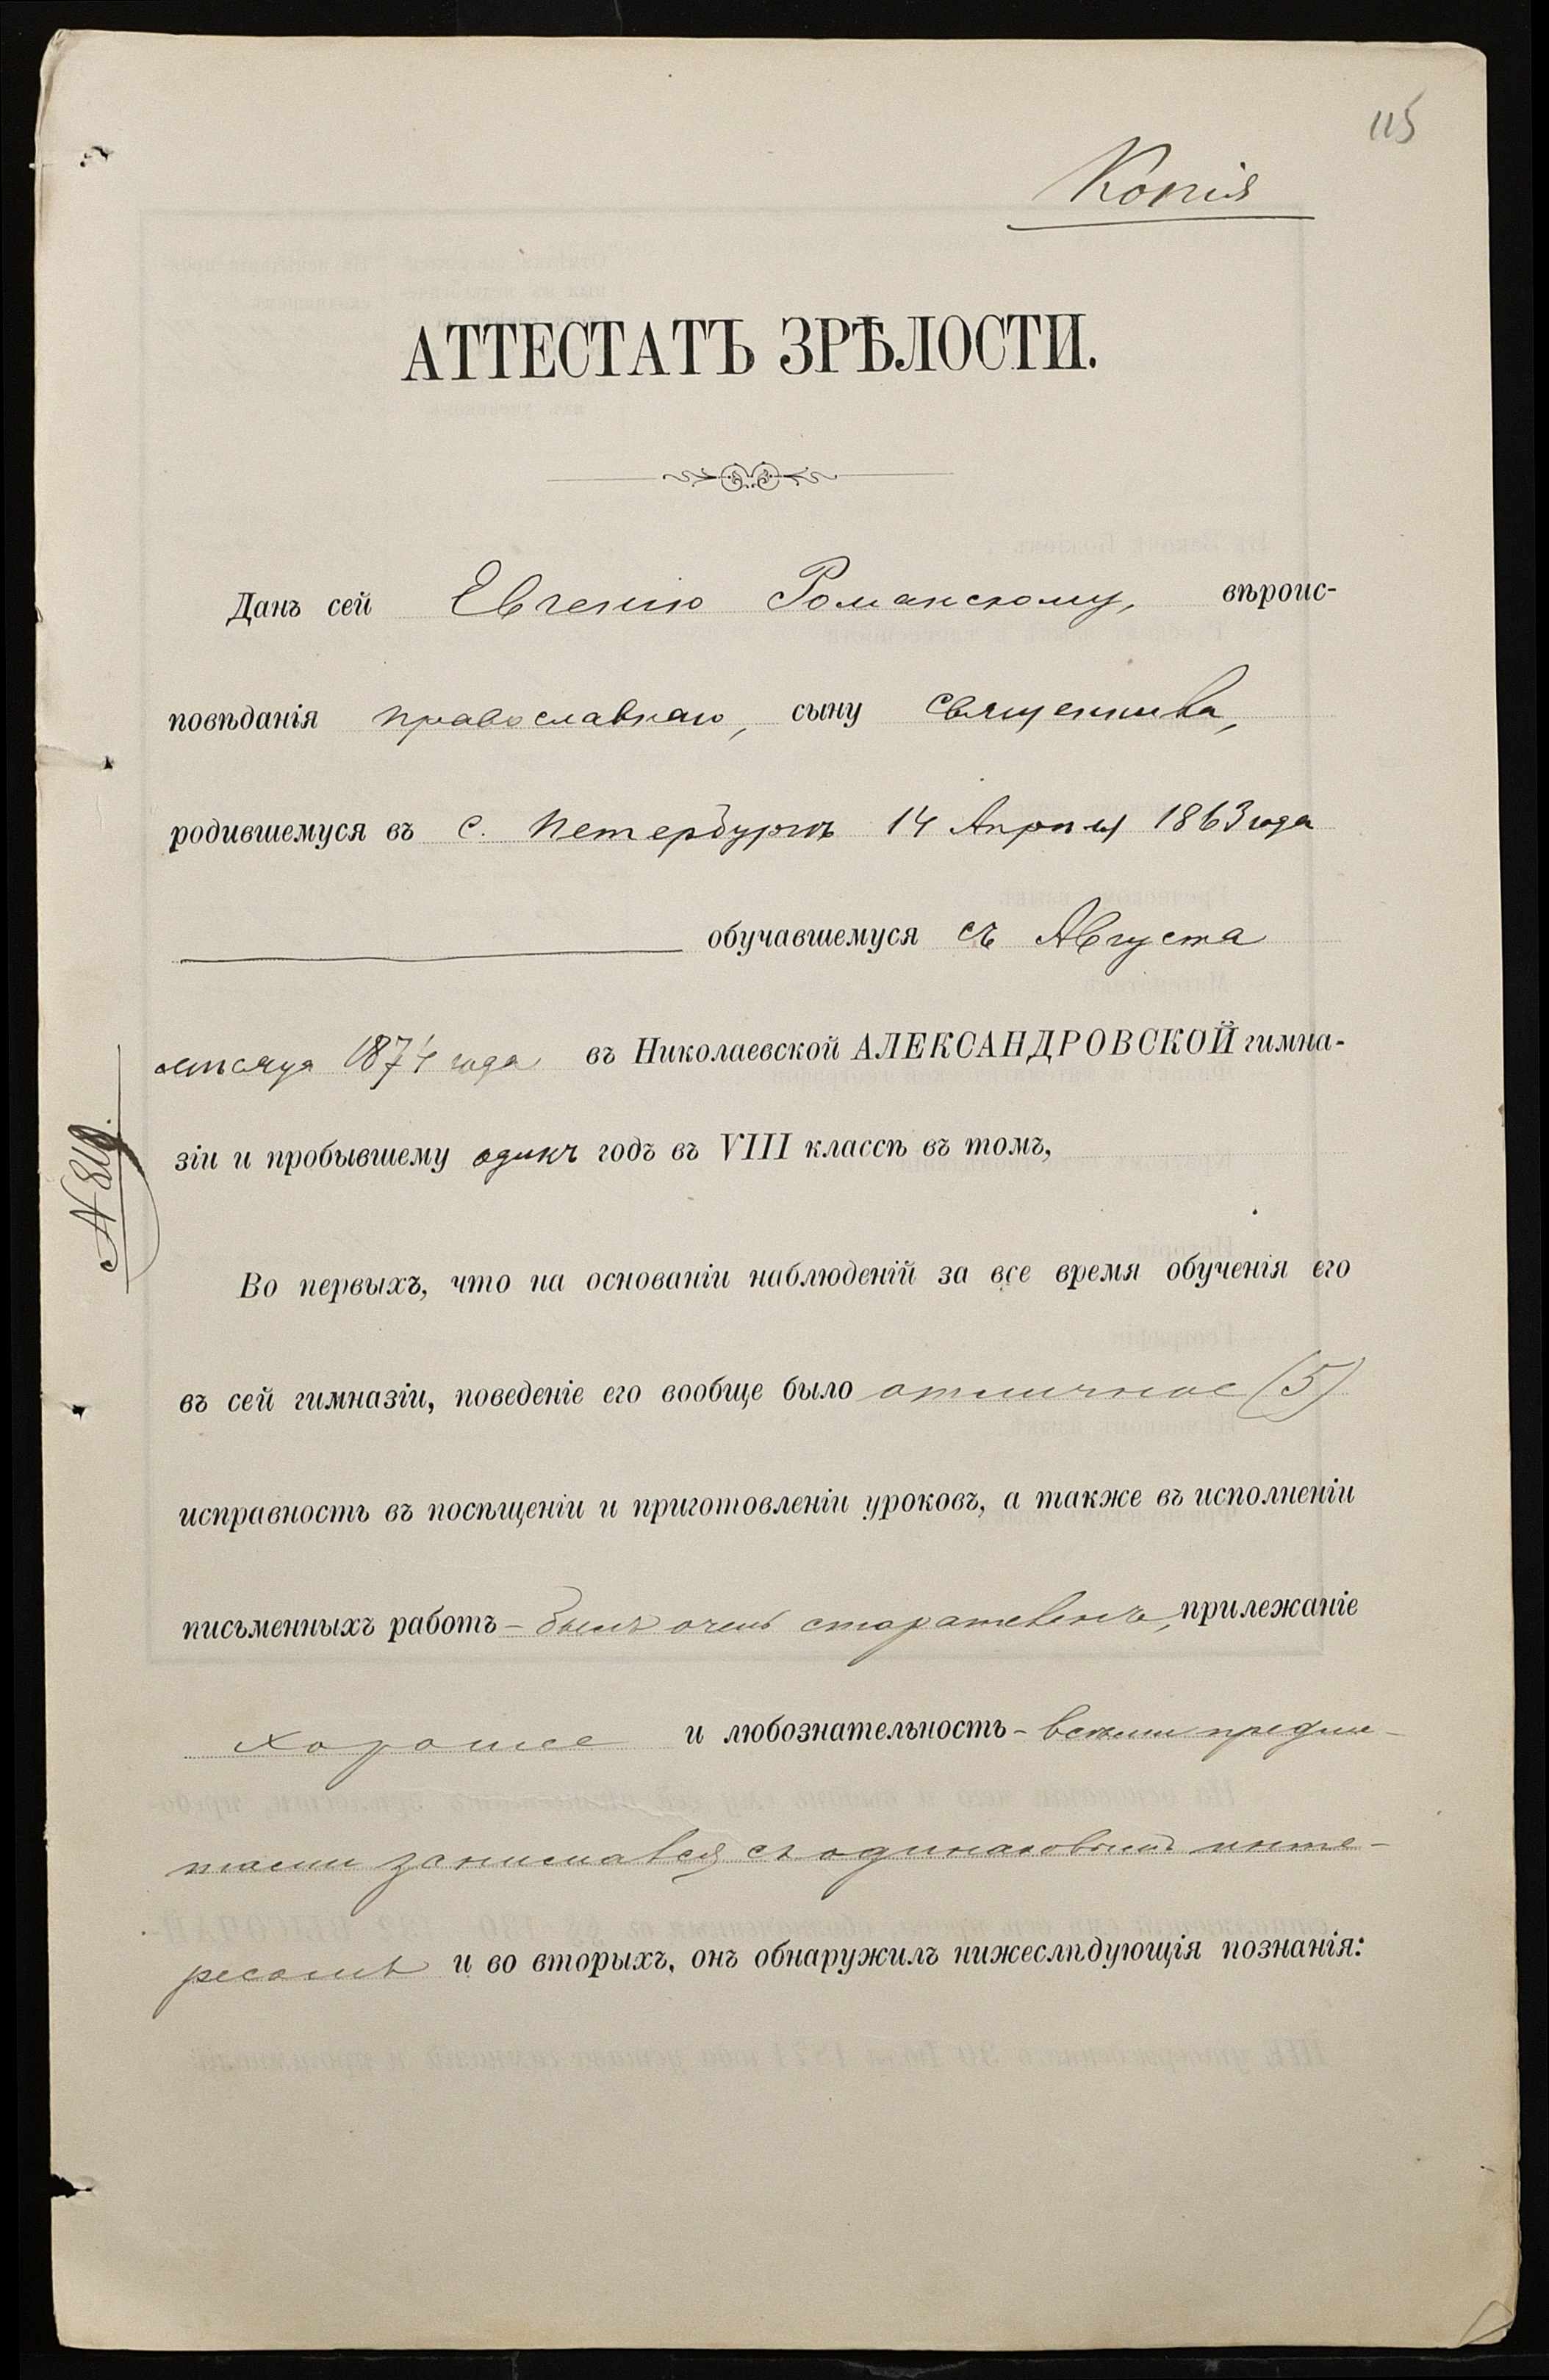 115
Копія
АТТЕСТАТЪ ЗРѢЛОСТИ.
Данъ сей Евгенію Романскому, вѣроис-
повѣданія православнаго, сыну священника,
родившемуся въ С. Петербургѣ 14 Апрѣля 1863 года
обучавшемуся съ Августа
мѣсяца 1874 года въ Николаевской АЛЕКСАНДРОВСКОЙ гимна-
зіи и пробывшему одинъ годъ въ VIII классѣ въ томъ,
Во первыхъ, что на основаніи наблюденій за все время обученія его
въ сей гимназіи, поведеніе его вообще было отличное (5)
исправность въ посѣщеніи и приготовленіи уроковъ, а также въ исполненіи
письменныхъ работъ – былъ очень старателенъ, прилежаніе
хорошее и любознательность – всѣми предме-
тами занимался съ одинаковымъ инте-
ресомъ и во вторыхъ, онъ обнаружилъ нижеслѣдующія познанія: